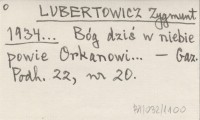 LUBERTOWICZ Zygmunt
1934... Bóg dziś w niebie
powie Orkanowi... — Gaz.
Podh. 22, nr 20.